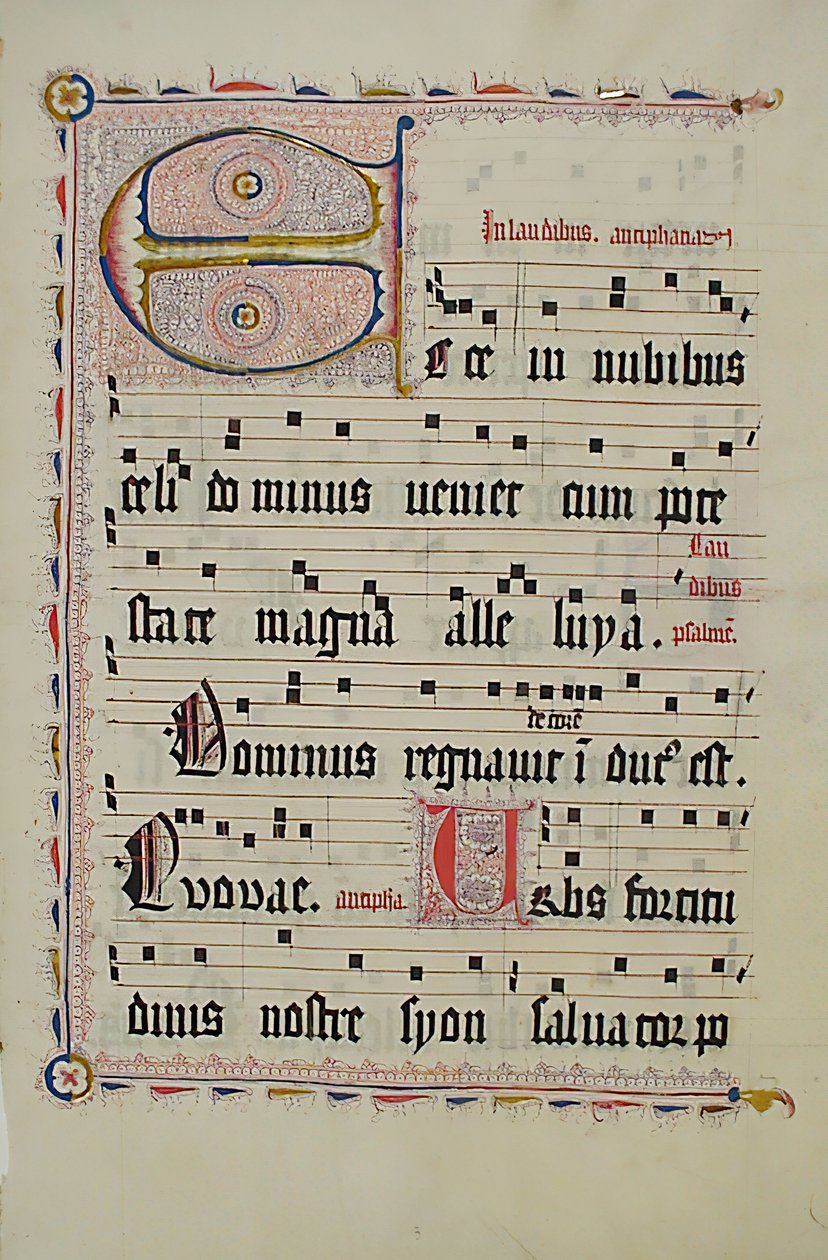 In laudibus. antiphana
Ecce in nubibus
celi do minus ueniet cum pote
state magna alle luya.
Lau
dibus
psalmē.
decorē
Dominus regnauit ī dutꝰ est.
Evovae. antipha. Urbs fortitu
dinis nostre syon saluator po